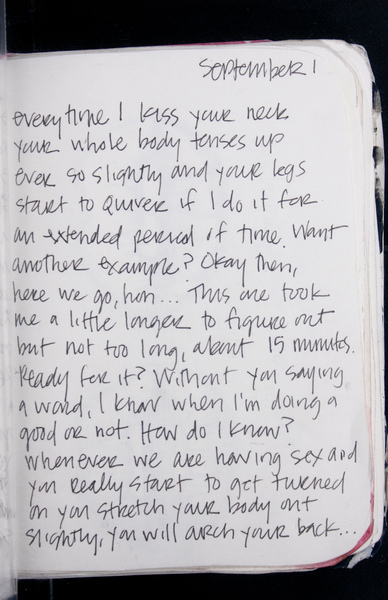 September 1
everytime I kiss your neck
your whole body tenses up
ever so slightly and your legs
start to quiver if I do it for
an extended period of time. Want
another example? Okay then,
here we go, hon... This one took
me a little longer to figure out
but not too long, about 15 minutes.
Ready for it? Without you saying
a word, I know when I'm doing a
good or not. How do I know?
Whenever we are having sex and
you really start to get turned
on you stretch your body out
slightly, you will arch your back...